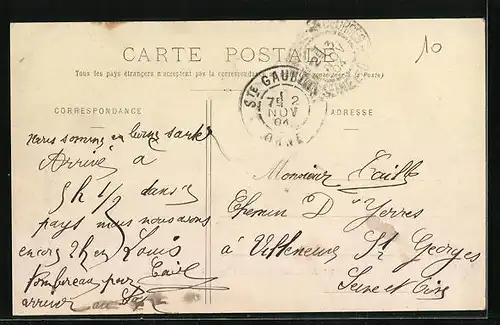 10
CARTE POSTALE
Tous les pays étrangers n'acceptent pas la correspondance
(à la Poste)
CORRESPONDANCE
ADRESSE
STE GAUBURGE
7E 2
NOV
04
ORNE
en bonne santé
Arrivé à
5 h 1/2 dans
pays mais nous avons
encore 2h en
Tombereau pour
arriver
Monsieur Taille
Chemin D'Yerres
à Villeneuve St Georges
Seine et Oise